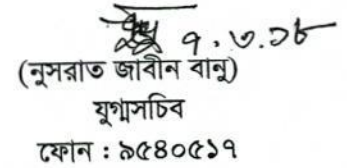 ৭.৩.১৮
(নুসরাত জাবীন বানু)
যুগ্মসচিব
ফোন : ৯৫৪০৫১৭